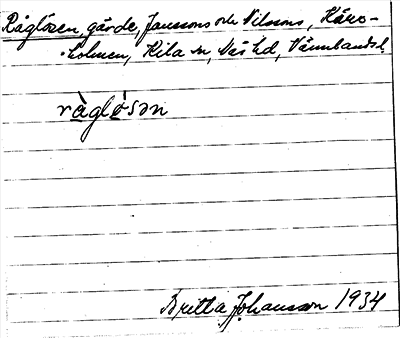 Råglösen, gärde, Janssons och Nilssons, Håre-
holmen, Kila sn, Näs hd, Värmlands l.
råglösən
Britta Johansson 1934